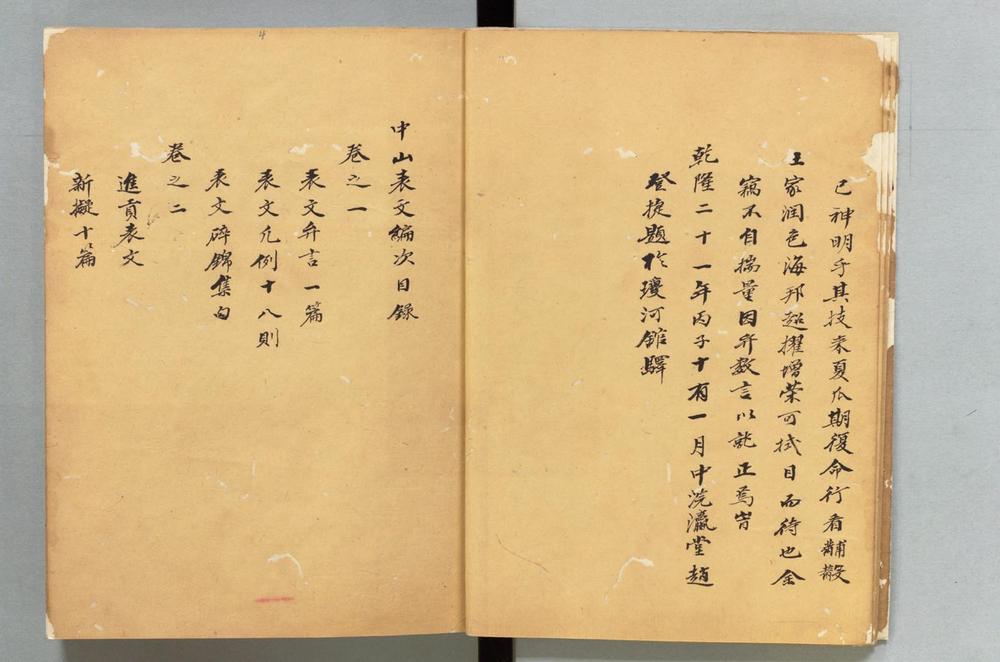 已神明乎其技来夏瓜期復命行看黼黻
王家润色海邦超擢增荣可拭目而待也余
竊不自揣量因弁数言以就正焉旹
乾隆二十一年丙子十有一月中浣瀛堂趙
登捷題於瓊河舘驛
中山表文編次目錄
卷之一
表文弁言一篇
表文凡例十八則
表文碎錦集句
卷之二
進貢表文
新擬十篇
4